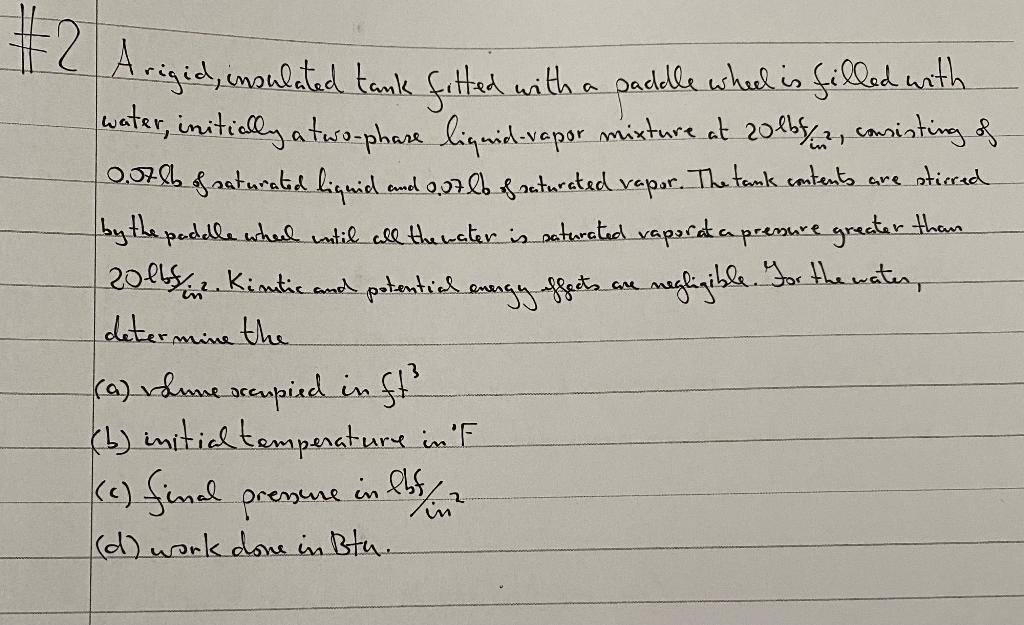 #2 A rigid, insulated tank fitted with a paddle wheel is filled with
water, initially a two-phase liquid-vapor mixture at 20 lbf/in², consisting of
0.07 lb of saturated liquid and 0.07 lb of saturated vapor. The tank contents are stirred
by the paddle wheel until all the water is saturated vapor at a pressure greater than
20 lbf/in². Kinetic and potential energy effects are negligible. For the water,
determine the
(a) volume occupied in ft³
(b) initial temperature in °F
(c) final pressure in lbf/in²
(d) work done in Btu.